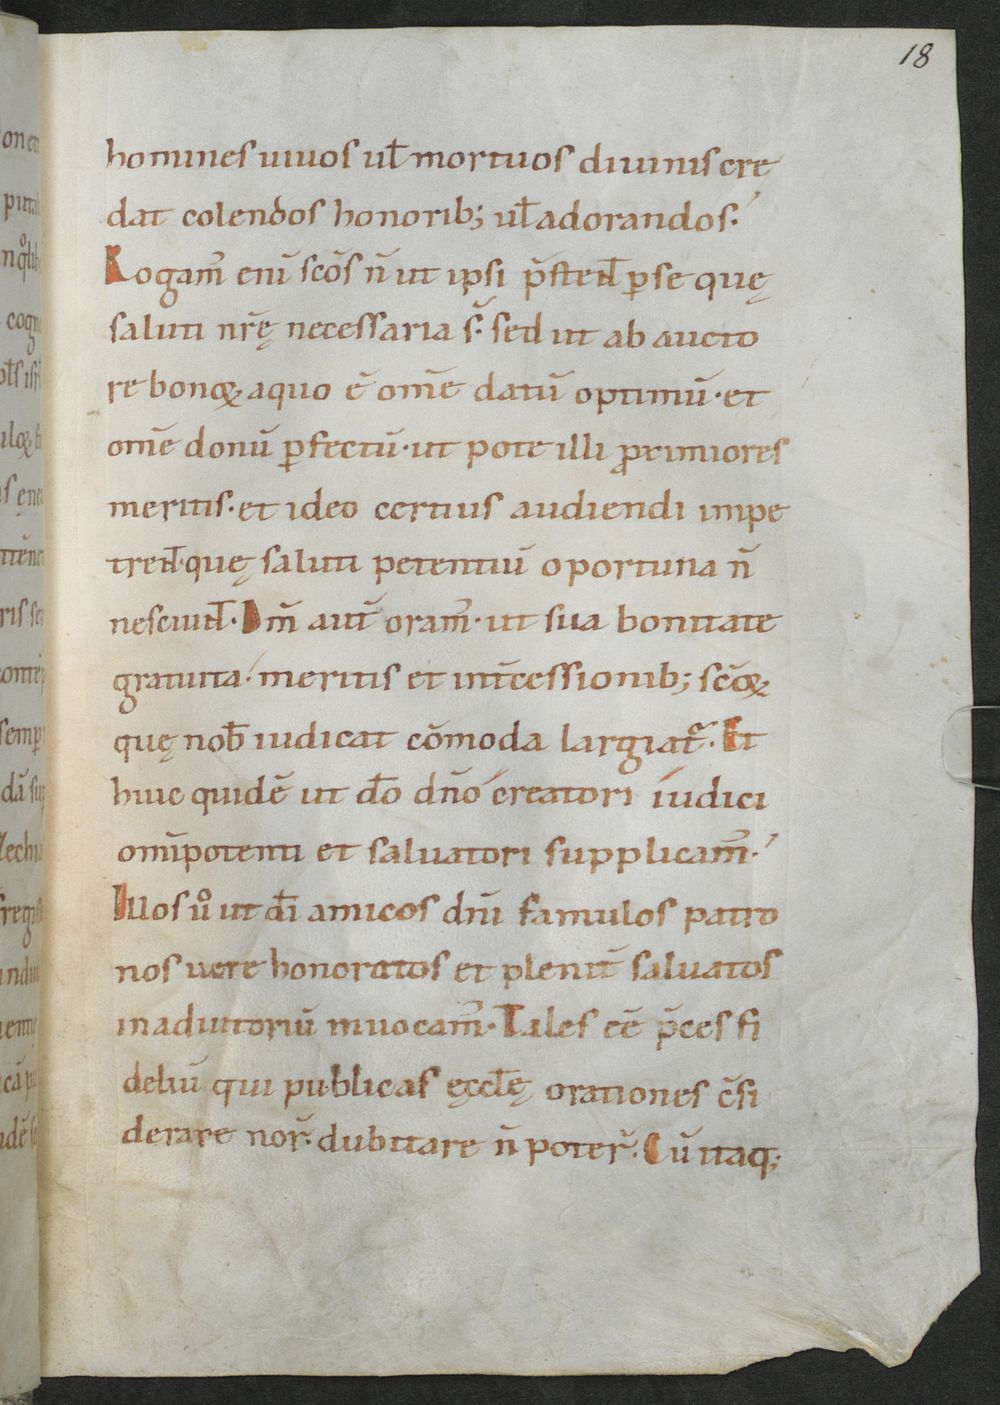 18
homines uiuos uł mortuos diuinis cre
dat colendos honorib; uł adorandos.
Rogam᷒ enī scōs n̄ ut ipsi p̄stent̄ ꝑse quę
saluti nr̄ę necessaria s̄. sed ut ab aucto
re bonoꝝ aquo ē om̄e datū optimū. et
om̄e donū ꝑfectū. ut pote illi ꝓximiores
meritis. et ideo certius audiendi impe
trent̄. quę saluti petentiū oportuna n̄
nesciunt̄. Dm̄ aut̄ oram᷒. ut sua bonitate
gratuita meritis et int̄cessionib; scōꝝ
quę nob̄ iudicat cōmoda largiat᷑. Et
huic quidē ut dō dn̄o creatori iudici
omīpotenti et saluatori supplicam᷒.
Illos ů ut dī amicos dn̄i famulos patro
nos uere honoratos et plenit̄ saluatos
inadiutoriū inuocam᷒. Tales eē p̄ces fi
deliū qui publicas ęccłę orationes c̄si
derare nor̄. dubitare n̄ poter̄. Cū itaq;